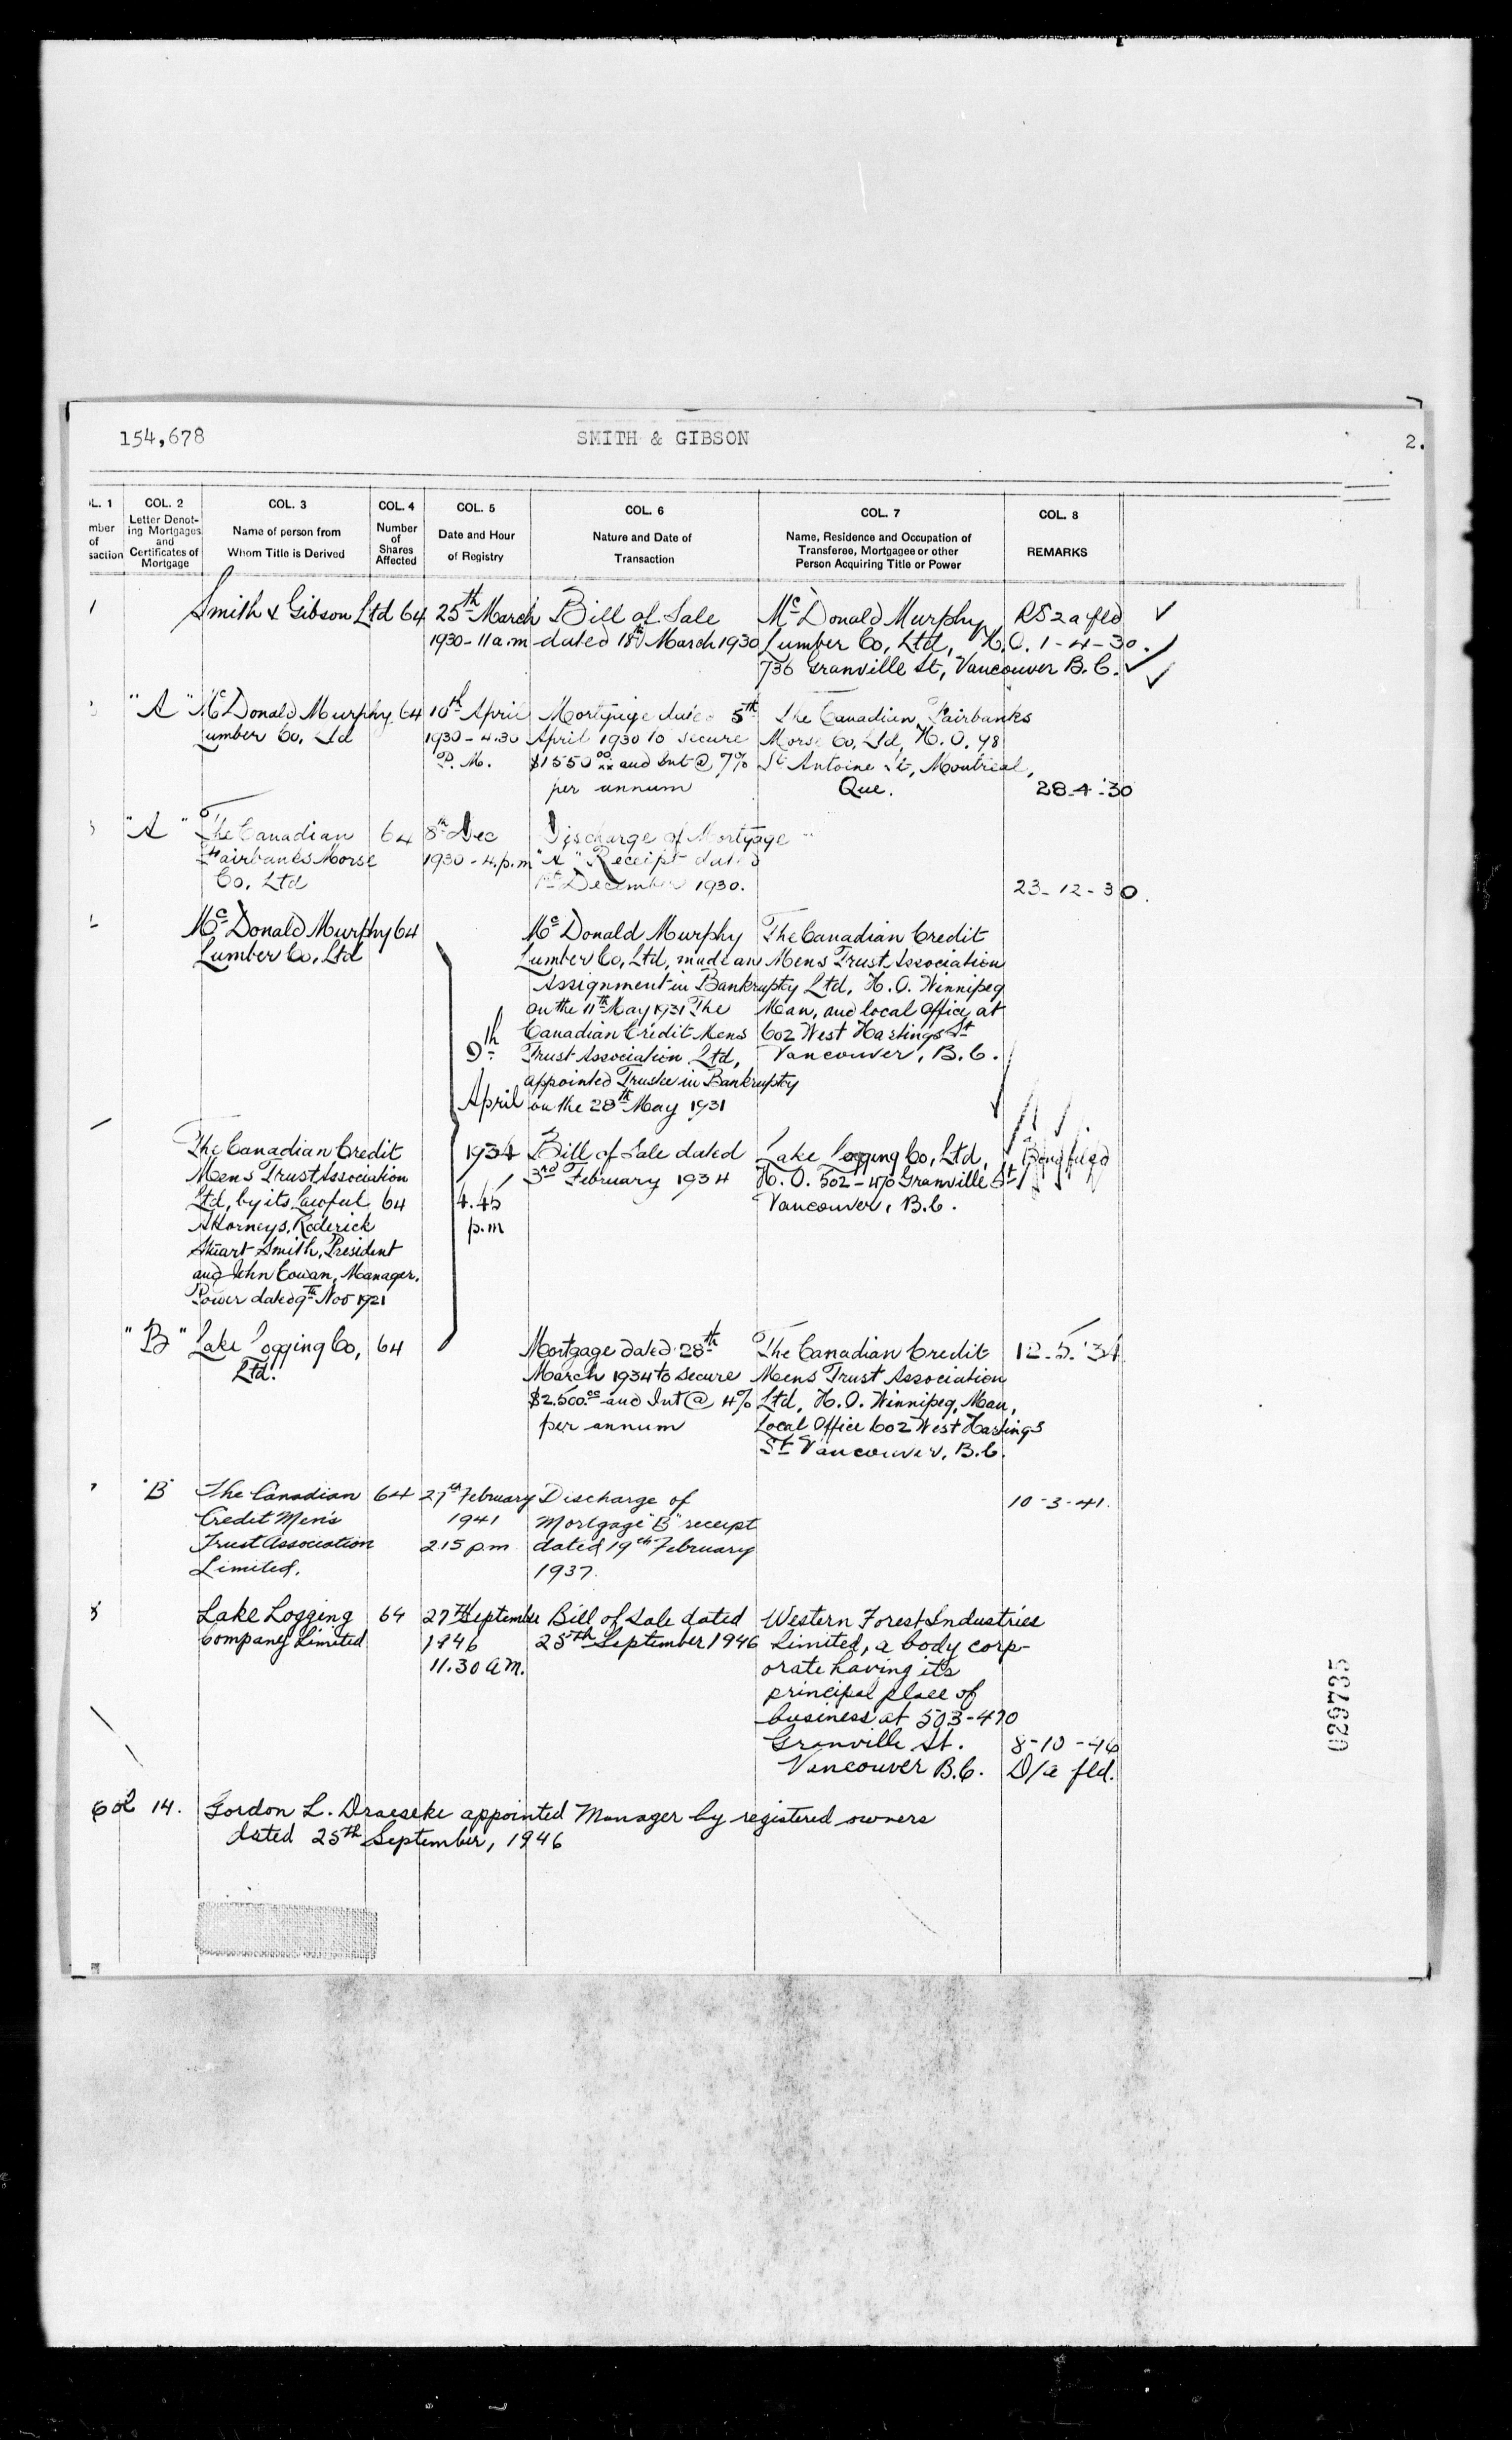 154,678
SMITH & GIBSON
2.
L. 1
mber
of
saction
COL. 2
Letter Denot-
ing Mortgages
and
Certificates of
Mortgage
COL. 3
Name of person from
Whom Title is Derived
COL. 4
Number
of
Shares
Affected
COL. 5
Date and Hour
of Registry
COL. 6
Nature and Date of
Transaction
COL. 7
Name, Residence and Occupation of
Transferee, Mortgagee or other
Person Acquiring Title or Power
COL. 8
REMARKS
1
Smith & Gibson Ltd
64
25th March
1930 - 11 a.m
Bill of Sale
dated 18th March 1930
Mc Donald Murphy
Lumber Co, Ltd, H.O.
736 Granville St, Vancouver B.C.
RS2a fld
1-4-30.
"A"
Mc Donald Murphy
Lumber Co, Ltd
64
10th April
1930 - 4.30
P.M.
Mortgage dated 5th
April 1930 to secure
$1550.00 and Int @ 7%
per annum
The Canadian Fairbanks
Morse Co, Ltd, H.O. 98
St Antoine St, Montreal,
Que.
28-4-'30
"A"
The Canadian
Fairbanks Morse
Co. Ltd
64
8th Dec
1930 - 4.p.m
Discharge of Mortgage
"A" Receipt dated
1st December 1930.
23-12-30.
Mc Donald Murphy
Lumber Co, Ltd
64
9th
April
1934
4.45
p.m
Mc Donald Murphy
Lumber Co, Ltd, made an
Assignment in Bankruptcy
on the 11th May 1931 The
Canadian Credit Mens
Trust Association Ltd,
appointed Trustee in Bankruptcy
on the 28th May 1931
The Canadian Credit
Mens Trust Association
Ltd, H.O. Winnipeg
Man, and local Office at
602 West Hastings St
Vancouver, B.C.
The Canadian Credit
Mens Trust Association
Ltd, by its Lawful
Attorneys, Roderick
Stuart Smith, President
and John Cowan, Manager.
Power dated 9th Nov 1921
64
Bill of Sale dated
3rd February 1934
Lake Logging Co, Ltd,
H.O. 502-470 Granville St
Vancouver, B.C.
"B"
Lake Logging Co,
Ltd.
64
Mortgage dated 28th
March 1934 to secure
$2.500.00 and Int @ 4%
per annum
The Canadian Credit
Mens Trust Association
Ltd, H.O. Winnipeg, Man,
Local Office 602 West Hastings
St Vancouver, B.C.
12-5-'34
"B"
The Canadian
Credit Men's
Trust Association
Limited.
64
27th February
1941
2.15 p.m
Discharge of
Mortgage "B" receipt
dated 19th February
1937.
10-3-41.
8
Lake Logging
Company Limited
64
27th September
1946
11.30 A.M.
Bill of Sale dated
25th September 1946
Western Forest Industries
Limited, a body corp-
orate having its
principal place of
business at 503-470
Granville St.
Vancouver B.C.
8-10-46
D/a fld.
Col 14.
Gordon L. Draeseke appointed Manager by registered owners
dated 25th September, 1946
029735